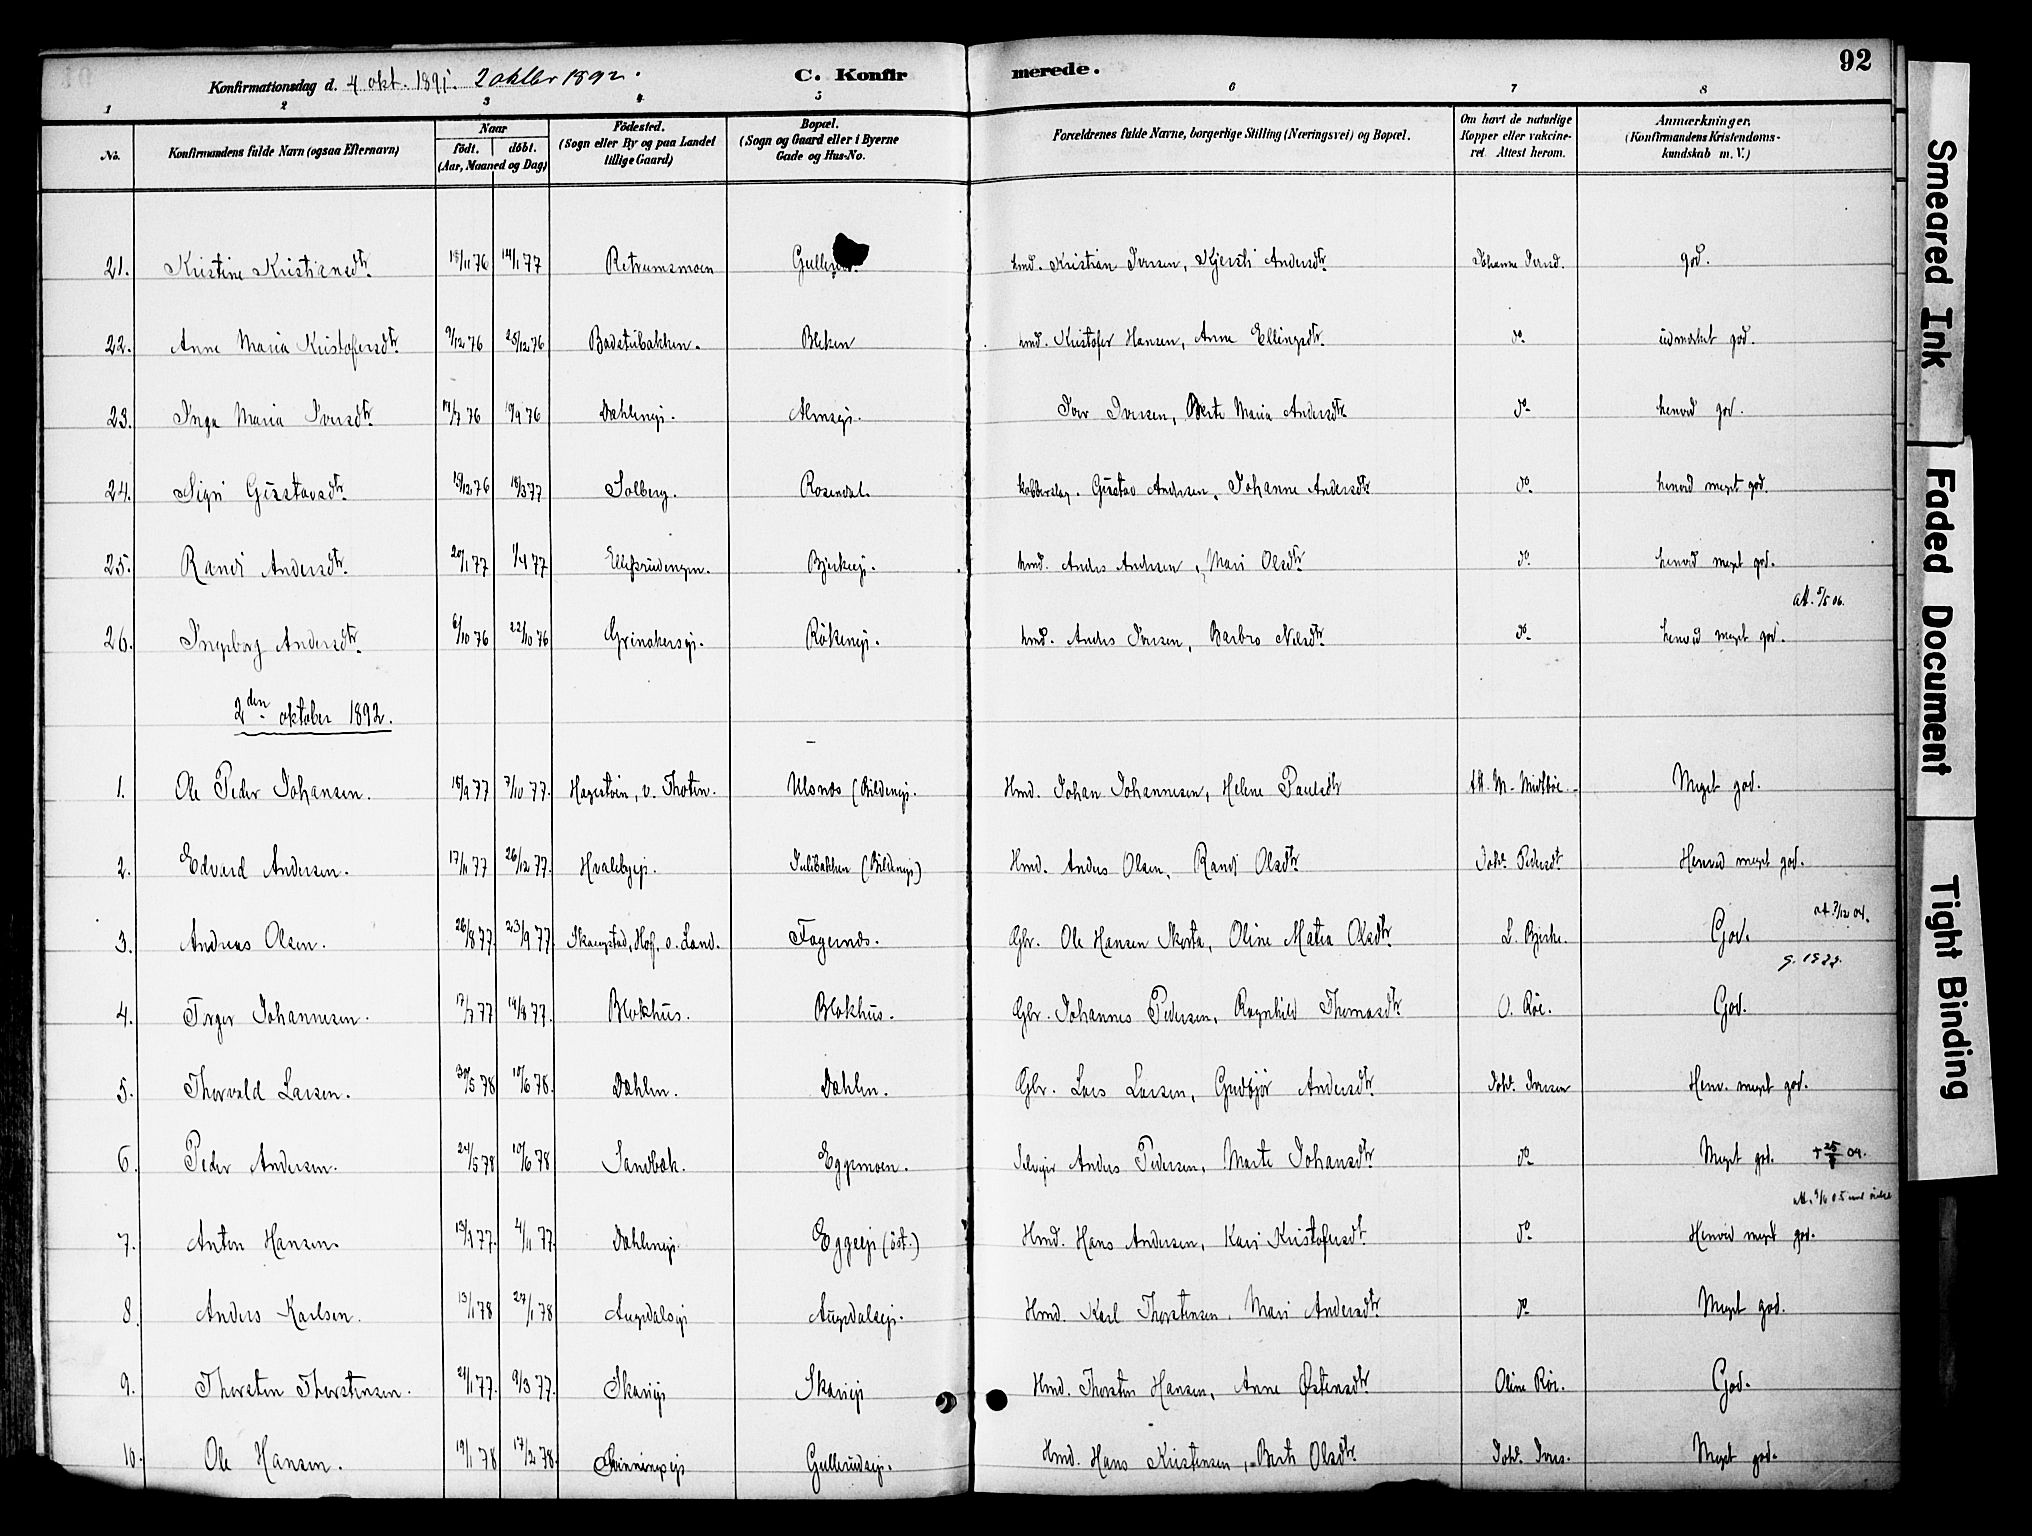 Konfirmationsdag d. 4 okt. 1891. 2 oktbr 1892.
C. Konfirmerede.
92
1 2 3 4 5 6 7 8
No. Konfirmandens fulde Navn (ogsaa Efternavn) Naar født. døbt. (Aar, Maaned og Dag) Födested. (Sogn eller By og paa Landet tillige Gaard) Bopæl. (Sogn og Gaard eller i Byerne Gade og Hus-No. Forældrenes fulde Navne, borgerlige Stilling (Næringsvei) og Bopæl. Om havt de naturlige Kopper eller vakcineret. Attest herom. Anmærkninger, (Konfirmandens Kristendomskundskab m. V.)
21. Kristine Kristiansdtr 14/1 77 Retrumsmoen hmd. Kristian Iversen, Kjersti Andersdtr Johanne Iversd. god.
22. Anne Maria Kristofersdtr. 9/12 76 25/12 76 Badstubakken. Bleken hmd. Kristofer Hansen, Anne Ellingsdtr. do udmærket god.
23. Inga Maria Iversdtr 17/7 76 10/9 76 Dæhlenej. Almsej. Iver Iversen, Berte Maria Andersdtr do henved god.
24. Sigri Gustavsdtr. 15/12 76 18/3 77 Solberg. Rosendal. kobberslag. Gustav Andersen, Johanne Andersdtr do henved meget god.
25. Randi Andersdtr. 20/1 77 1/4 77 Ellefsrudengen. Bjerkeej. hmd. Anders Andersen, Mari Olsdtr do henved meget god.
att. 5/5 06.
26. Ingeborg Andersdtr. 6/10 76 22/10 76 Grinakersej. Røkenej. hmd. Anders Iversen, Barbro Nilsdtr. do henved meget god.
2den oktober 1892.
1. Ole Peder Johansen. 18/9 77 7/10 77. Hagestuen, v. Thoten. Ulsnes (Bildenej. Hmd. Johan Johannesen, Helene Paulsdtr att. M. Midtbøe. Meget god.
2. Edvard Andersen. 17/11 77 26/12 77. Hvalebyej. Julibakken (Bildenej) Hmd. Anders Olsen, Randi Olsdtr. Johs. Pedersdt Henved meget god.
att. 7/12 04.
3. Andreas Olsen. 26/8 77 23/9 77 Skaugstad, Hof, o. Land. Fagernæs. Gbr. Ole Hansen Skøta, Oline Matea Olsdtr. L. Bjerke. God.
g. 1922.
4. Torger Johannesen. 17/7 77 19/8 77. Blokhus. Blokhus. Gbr. Johannes Pedersen, Ragnhild Thomasdtr O. Røe. God.
5. Thorvald Larsen. 30/5 78 10/6 78. Dæhlen. Dæhlen. Gbr. Lars Larsen, Gudbjør Andersdtr Johs. Iversen Henv. meget god.
6. Peder Andersen. 24/5 78 10/6 78 Sandbæk. Eggemoen. Selvejer Anders Pedersen, Marte Johansdtr do Meget god. + 25/8 04.
7. Anton Hansen. 13/9 77. 4/11 77. Dæhlenej. Eggeej (øst.) Hmd. Hans Andersen, Kari Kristofersdt. do Henved meget god.
8. Anders Karlsen. 13/1 78 27/1 78 Augedalsej Augedalsej. Hmd. Karl Thorstensen, Mari Andersdtr. do Meget god.
9. Thorsten Thorstensen. 21/1 77. 9/3 77. Skariej Skariej Hmd. Thorsten Hansen, Anne Østensdtr Oline Røe. God.
10. Ole Hansen. 19/1 78 17/2 78. Gullerudsej. Hmd. Hans Kristensen, Berte Olsdtr Johs. Ivers. Meget god.
Smeared Ink
Faded Document
Tight Binding